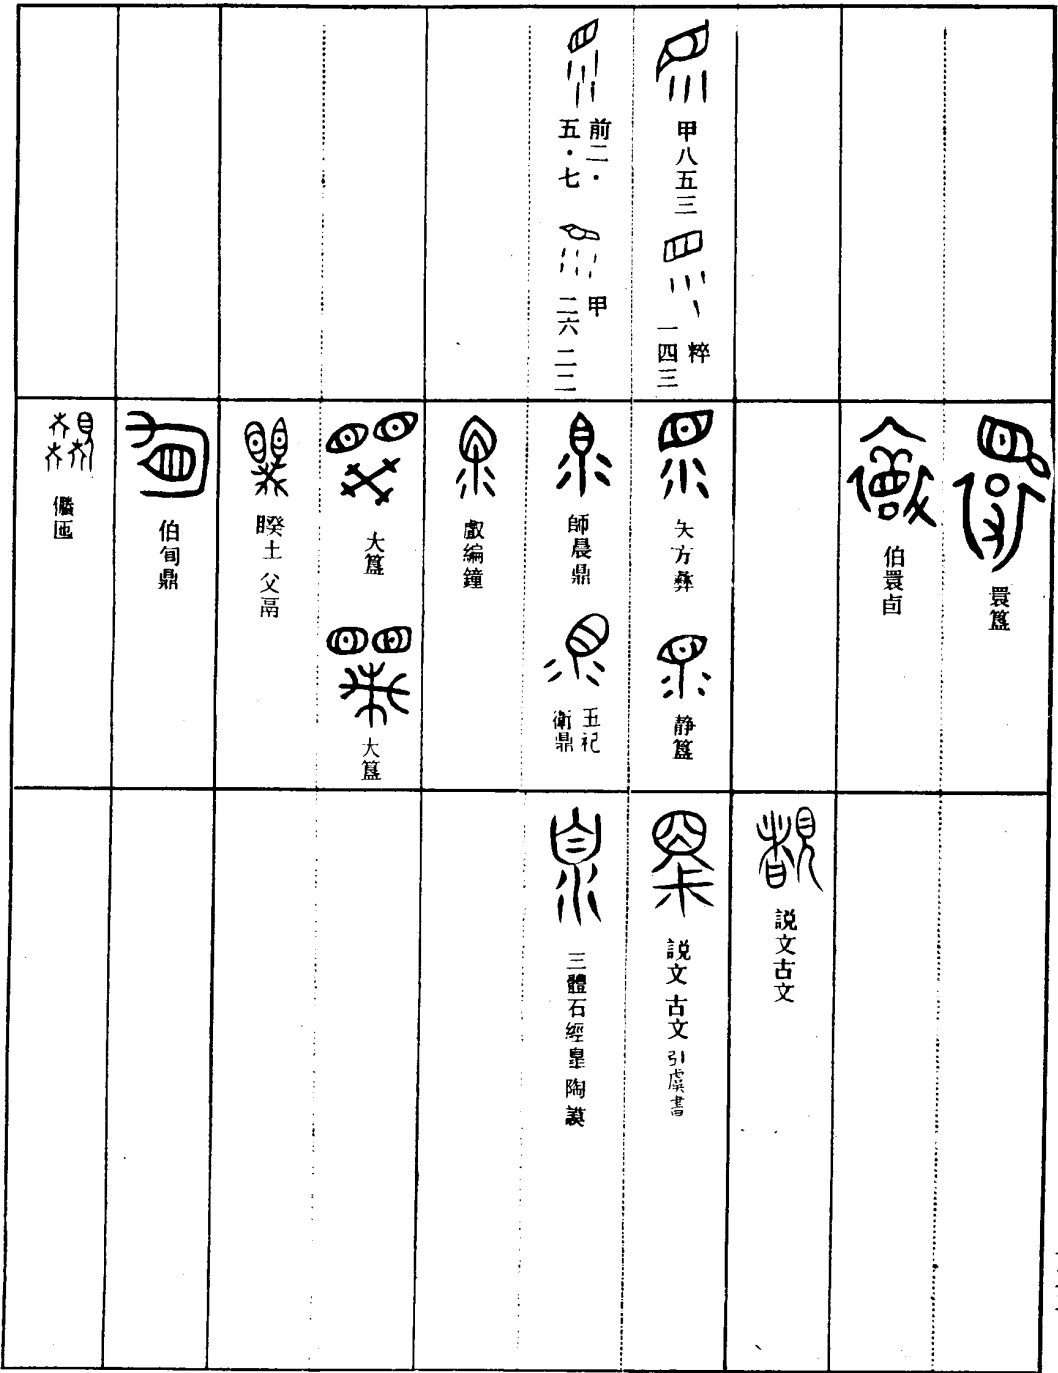 甲八五三
粹
一四三
前二・
五・七
甲
二六二二
睘簋
伯睘卣
夨方彝
靜簋
師晨鼎
五祀
衛鼎
𠭯編鐘
大簋
大簋
睽土父鬲
伯旬鼎
儵匜
説文古文
説文古文引虞書
三體石經皐陶謨